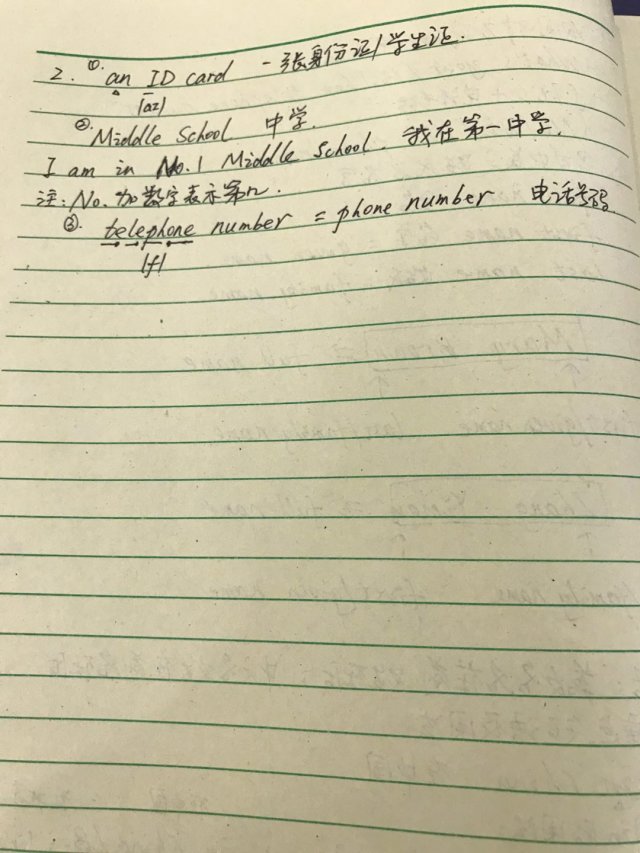 2. ① an ID card 一张身份证/学生证.
/aɪ/
② Middle School 中学.
I am in No.1 Middle School. 我在第一中学.
注: No. 加数字表示第n.
③ telephone number = phone number 电话号码
/f/